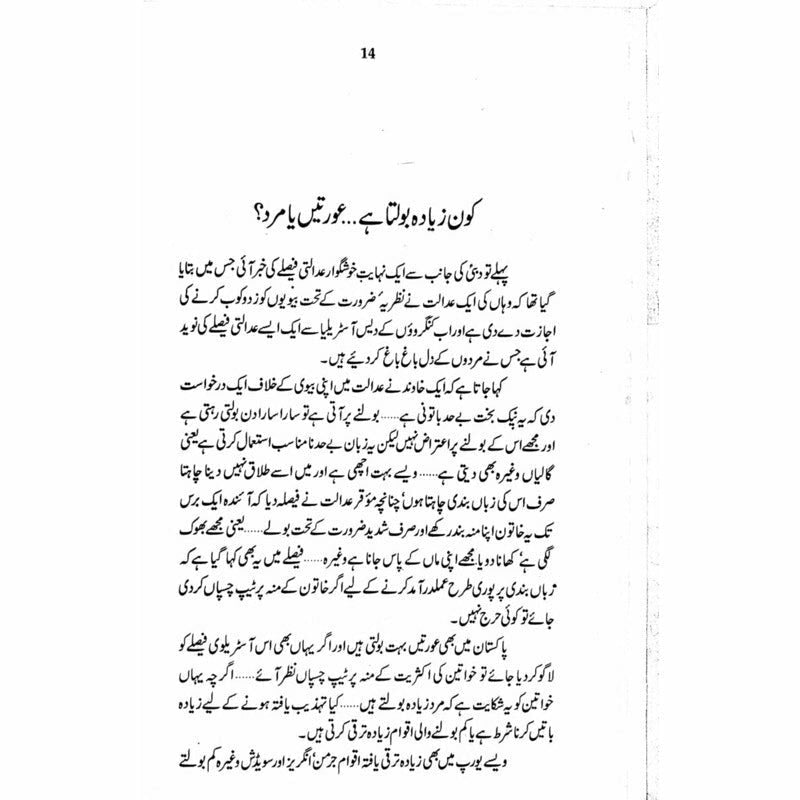 14
کون زیادہ بولتا ہے... عورتیں یا مرد؟
پہلے تو دبئی کی جانب سے ایک نہایت خوشگوار عدالتی فیصلے کی خبر آئی جس میں بتایا
گیا تھا کہ وہاں کی ایک عدالت نے نظریۂ ضرورت کے تحت بیویوں کو زدوکوب کرنے کی
اجازت دے دی ہے اور اب کنگروؤں کے دیس آسٹریلیا سے ایک ایسے عدالتی فیصلے کی نوید
آئی ہے جس نے مردوں کے دل باغ باغ کر دیئے ہیں۔
کہا جاتا ہے کہ ایک خاوند نے عدالت میں اپنی بیوی کے خلاف ایک درخواست
دی کہ یہ نیک بخت بے حد باتونی ہے...... بولنے پر آتی ہے تو سارا سارا دن بولتی رہتی ہے
اور مجھے اس کے بولنے پر اعتراض نہیں لیکن یہ زبان بے حد نامناسب استعمال کرتی ہے یعنی
گالیاں وغیرہ بھی دیتی ہے...... ویسے بہت اچھی ہے اور میں اسے طلاق نہیں دینا چاہتا
صرف اس کی زباں بندی چاہتا ہوں‘ چنانچہ مؤقر عدالت نے فیصلہ دیا کہ آئندہ ایک برس
تک یہ خاتون اپنا منہ بند رکھے اور صرف شدید ضرورت کے تحت بولے...... یعنی مجھے بھوک
لگی ہے‘ کھانا دو یا مجھے اپنی ماں کے پاس جانا ہے وغیرہ...... فیصلے میں یہ بھی کہا گیا ہے کہ
زباں بندی پر پوری طرح عملدرآمد کرنے کے لیے اگر خاتون کے منہ پر ٹیپ چسپاں کر دی
جائے تو کوئی حرج نہیں۔
پاکستان میں بھی عورتیں بہت بولتی ہیں اور اگر یہاں بھی اس آسٹریلوی فیصلے کو
لاگو کر دیا جائے تو خواتین کی اکثریت کے منہ پر ٹیپ چسپاں نظر آئے...... اگرچہ یہاں
خواتین کو یہ شکایت ہے کہ مرد زیادہ بولتے ہیں...... کیا تہذیب یافتہ ہونے کے لیے زیادہ
باتیں کرنا شرط ہے یا کم بولنے والی اقوام زیادہ ترقی کرتی ہیں۔
ویسے یورپ میں بھی زیادہ ترقی یافتہ اقوام جرمن‘ انگریز اور سویڈش وغیرہ کم بولتے